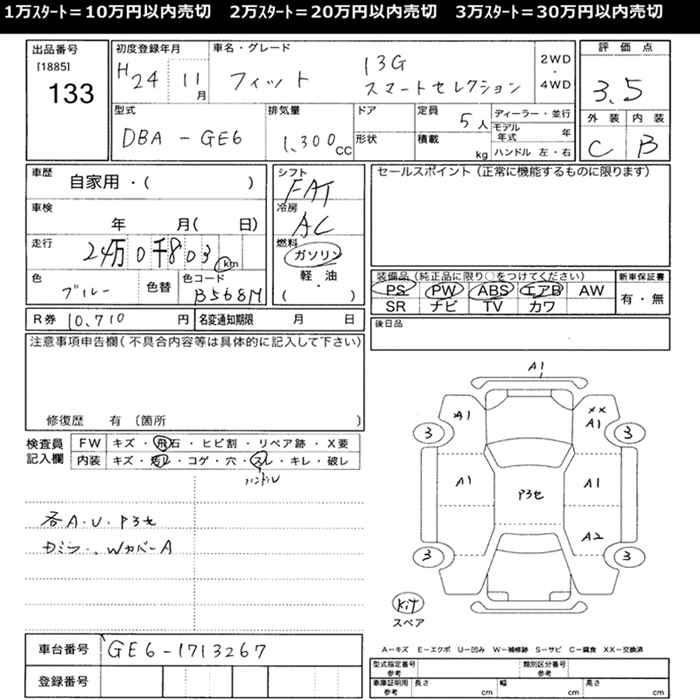 1万ｽﾀｰﾄ＝10万円以内売切　2万ｽﾀｰﾄ＝20万円以内売切　3万ｽﾀｰﾄ＝30万円以内売切
出品番号
[1885]
133
初度登録年月
H24 11月
車名・グレード
フィット 13G
スマートセレクション
2WD
・
4WD
評価点
3.5
型式
DBA-GE6
排気量
1,300cc
ドア
形状
定員
5人
積載
kg
ディーラー・並行
モデル年式 年
ハンドル 左・右
外装 内装
C B
車歴
自家用・( )
車検
年 月( 日)
走行
24万0千803km
色
ブルー
色替
色コード
B568M
シフト
FAT
冷房
AC
燃料
ガソリン
軽・油
( )
セールスポイント(正常に機能するものに限ります)
装備品(純正品に限り○をつけてください)
PS PW ABS エアB AW
SR ナビ TV カワ
新車保証書
有・無
R券 10,710円
名変通知期限 月 日
後日品
注意事項申告欄(不具合内容等は具体的に記入して下さい)
修復歴 有〔箇所 〕
検査員
記入欄
FW キズ・飛石・ヒビ割・リペア跡・X要
内装 キズ・汚レ・コゲ・穴・スレ・キレ・破レ
ハンドル
各A.U.P3セ
WカバーA
A1
A1
XX
A1
3
3
A1
P3セ
A1
A2
3
3
Kit
スペア
A－キズ E－エクボ U－凹み W－補修跡 S－サビ C－腐食 XX－交換済
車台番号
GE6-1713267
登録番号
型式指定番号
参考
類別区分番号
参考
車庫証明用
参考
長さ cm
幅 cm
高さ cm